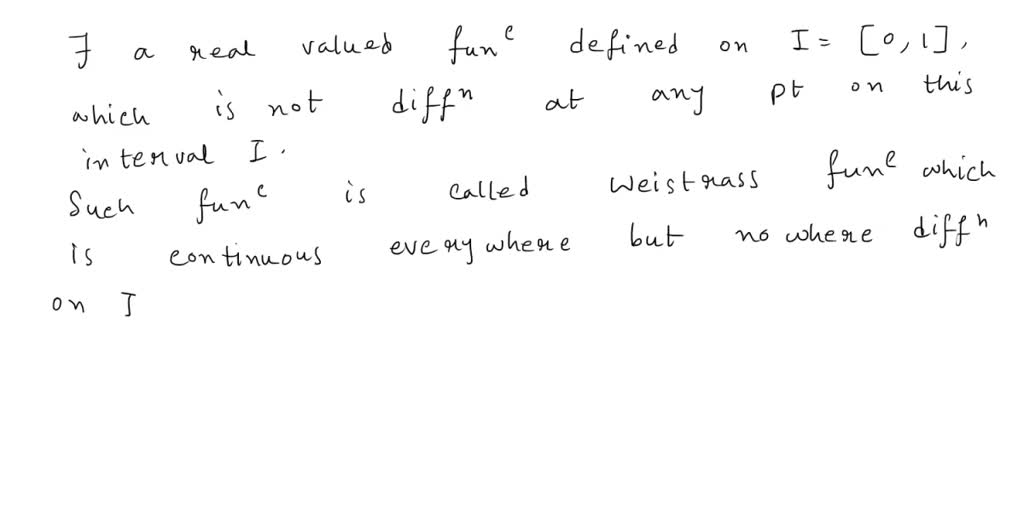 ∃ a real valued funᶜ defined on I = [0, 1],
which is not diffⁿ at any pt on this
interval I.
Such funᶜ is called Weistrass funᶜ which
is continuous everywhere but no where diffⁿ
on I